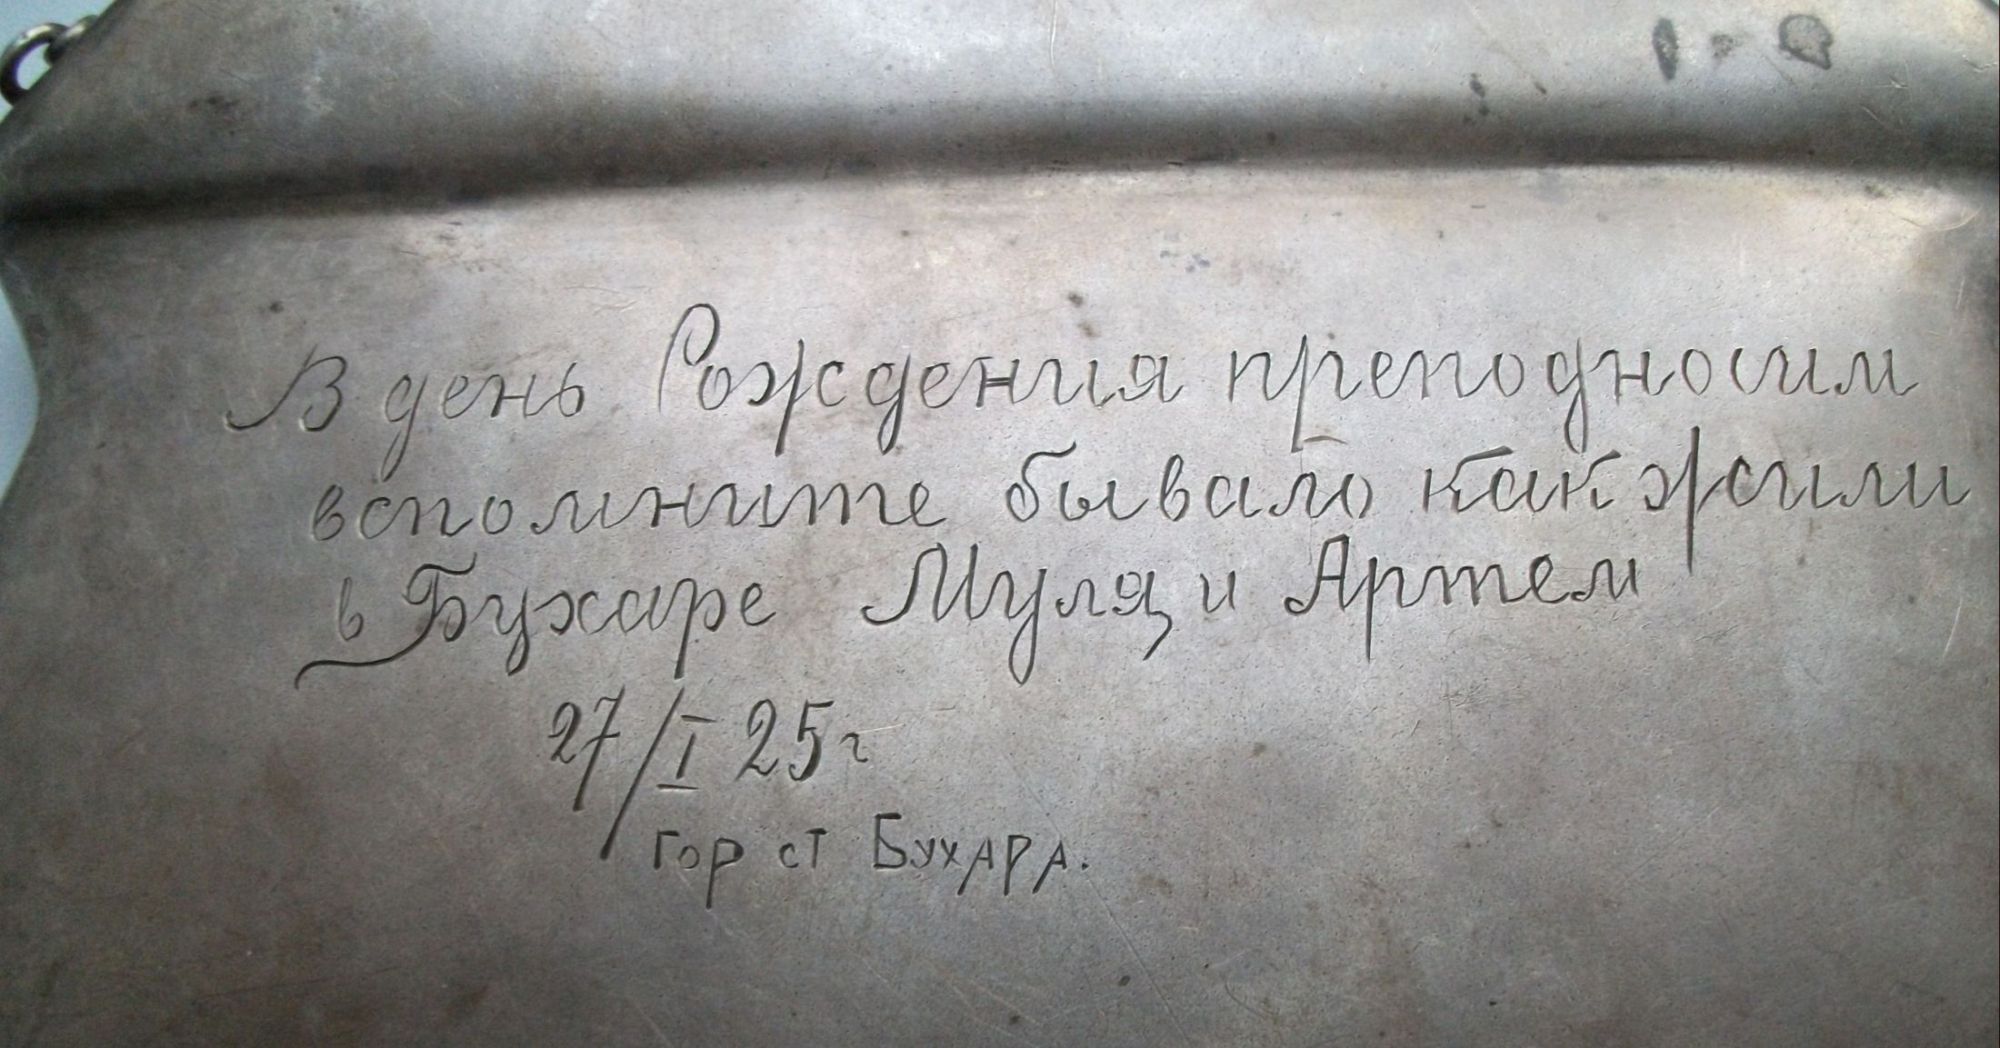 В день Рождения преподносим
вспомните бывало как жили
в Бухаре Муля и Артем
27/I 25г
гор ст Бухара.